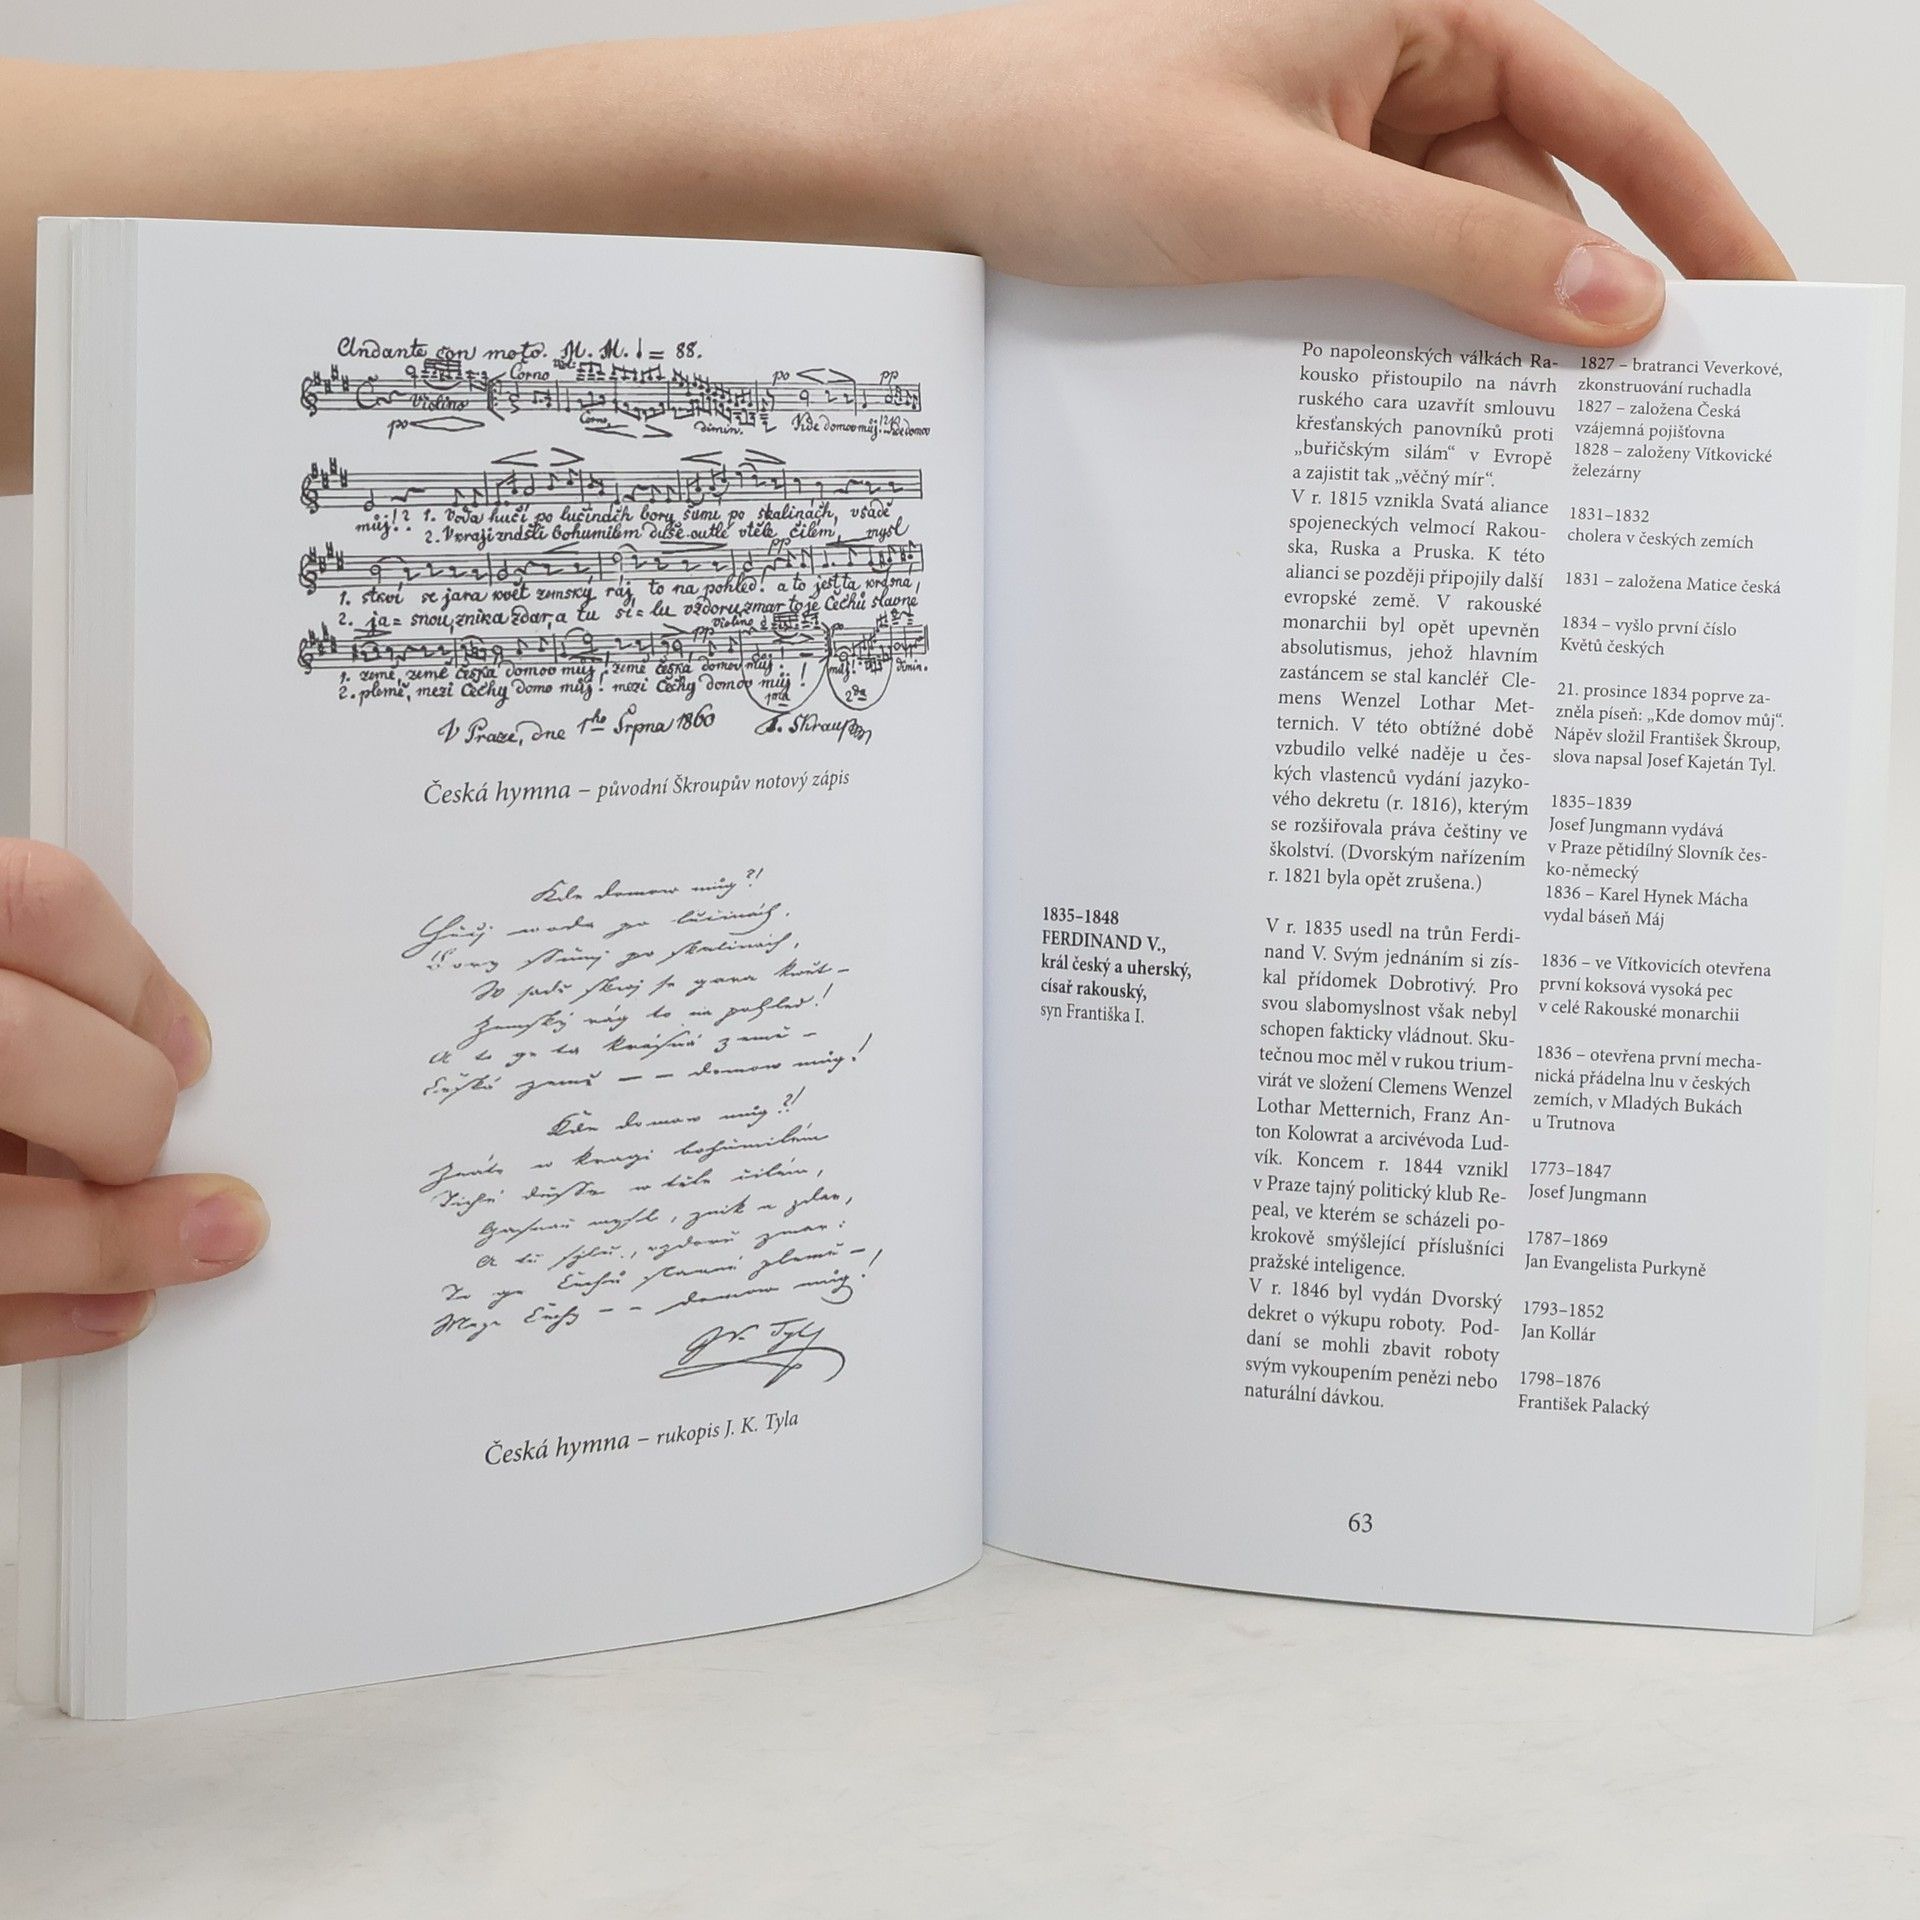 Andante con moto. M. M. ♩ = 88.
Corno
Violino
po
Corno
dimin.
po
pp
Kde domov můj!? Kde domov
můj!? 1. Voda hučí po lučinách bory šumí po skalinách, v sadě
2. V kraji znáš-li bohumilém duše outlé v těle čilém, mysl
pp
1. stkví se jara květ zemský ráj to na pohled! a to jest ta krásná,
2. ja= snou, znika zdar, a tu sí= lu vzdoru zmar to je Čechů slavné
violino
pp
1. země, země česká domov můj! země česká domov můj!
můj!
dimin.
2. plemě, mezi Čechy domo můj! mezi Čechy domov můj!
1ma
2da
V Praze, dne 1ho Srpna 1860
F. Skraup
Česká hymna – původní Škroupův notový zápis
Kde domow můg?!
Hučj woda po lučinách,
Bory ssumj po skalinách,
W sadě skwj se gara kwět –
Zemský rág to na pohled!
A to ge ta krásná země –
Česká země – – domow můg!
Kde domow můg?!
Znáte w kragi bohumilém
Tiché dusse w těle čilém,
Gasnau mysl, znik a zdar,
A tu sylu, wzdoru zmar:
To ge Čechů slawné plemě –,
Mezi Čechy – – domow můg!
J. K. Tyl
Česká hymna – rukopis J. K. Tyla
1835–1848
FERDINAND V.,
král český a uherský,
císař rakouský,
syn Františka I.
Po napoleonských válkách Ra-
kousko přistoupilo na návrh
ruského cara uzavřít smlouvu
křesťanských panovníků proti
„buřičským silám“ v Evropě
a zajistit tak „věčný mír“.
V r. 1815 vznikla Svatá aliance
spojeneckých velmocí Rakou-
ska, Ruska a Pruska. K této
alianci se později připojily další
evropské země. V rakouské
monarchii byl opět upevněn
absolutismus, jehož hlavním
zastáncem se stal kancléř Cle-
mens Wenzel Lothar Met-
ternich. V této obtížné době
vzbudilo velké naděje u čes-
kých vlastenců vydání jazyko-
vého dekretu (r. 1816), kterým
se rozšiřovala práva češtiny ve
školství. (Dvorským nařízením
r. 1821 byla opět zrušena.)
V r. 1835 usedl na trůn Ferdi-
nand V. Svým jednáním si zís-
kal přídomek Dobrotivý. Pro
svou slabomyslnost však nebyl
schopen fakticky vládnout. Sku-
tečnou moc měl v rukou trium-
virát ve složení Clemens Wenzel
Lothar Metternich, Franz An-
ton Kolowrat a arcivévoda Lud-
vík. Koncem r. 1844 vznikl
v Praze tajný politický klub Re-
peal, ve kterém se scházeli po-
krokově smýšlející příslušníci
pražské inteligence.
V r. 1846 byl vydán Dvorský
dekret o výkupu roboty. Pod-
daní se mohli zbavit roboty
svým vykoupením penězi nebo
naturální dávkou.
1827 – bratranci Veverkové,
zkonstruování ruchadla
1827 – založena Česká
vzájemná pojišťovna
1828 – založeny Vítkovické
železárny
1831–1832
cholera v českých zemích
1831 – založena Matice česká
1834 – vyšlo první číslo
Květů českých
21. prosince 1834 poprve za-
zněla píseň: „Kde domov můj“.
Nápěv složil František Škroup,
slova napsal Josef Kajetán Tyl.
1835–1839
Josef Jungmann vydává
v Praze pětidílný Slovník čes-
ko-německý
1836 – Karel Hynek Mácha
vydal báseň Máj
1836 – ve Vítkovicích otevřena
první koksová vysoká pec
v celé Rakouské monarchii
1836 – otevřena první mecha-
nická přádelna lnu v českých
zemích, v Mladých Bukách
u Trutnova
1773–1847
Josef Jungmann
1787–1869
Jan Evangelista Purkyně
1793–1852
Jan Kollár
1798–1876
František Palacký
63